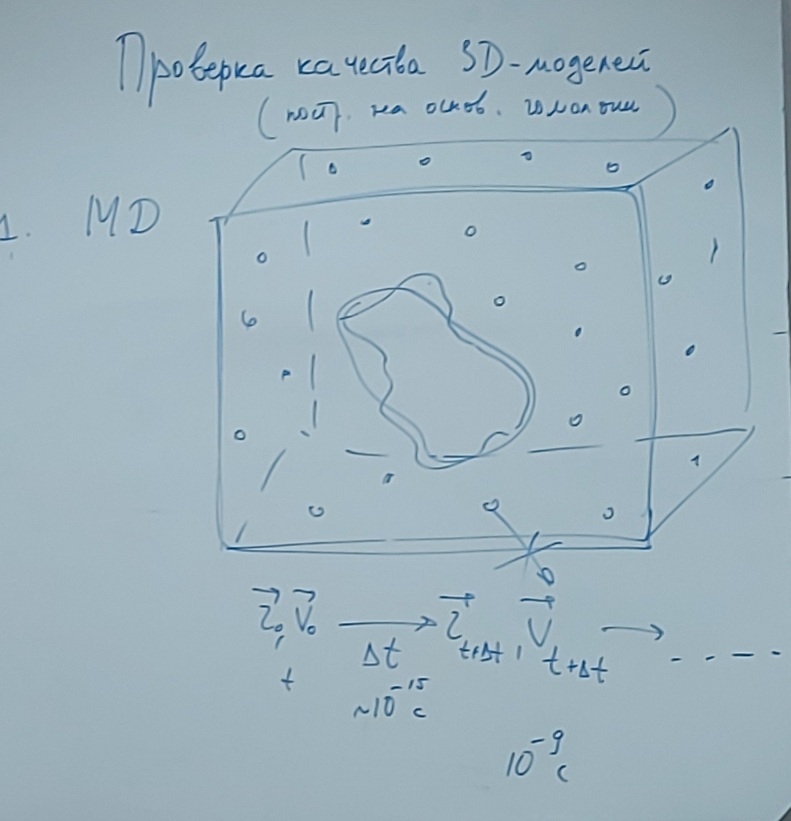 Проверка качества 3D-моделей
(постр. на основ. гомологии)
1. MD
r⃗₀, V⃗₀ → r⃗ₜ₊Δₜ, V⃗ₜ₊Δₜ → - - - -
t Δt
~10⁻¹⁵ с
10⁻⁹ с